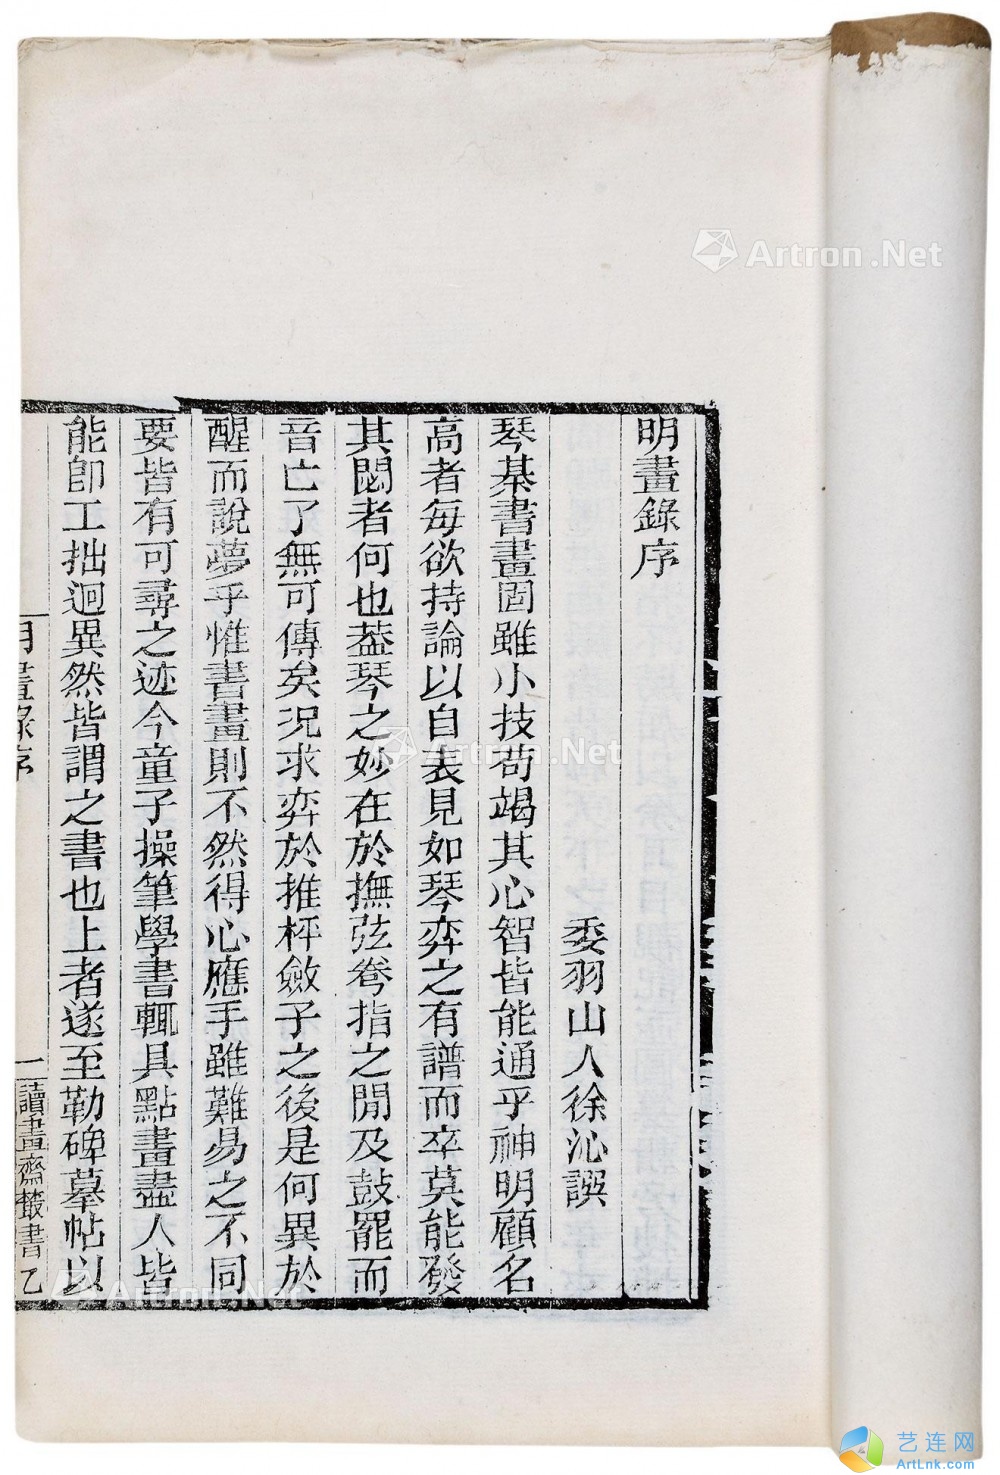 明畫錄序
委羽山人徐沁譔
琴棊書畫固雖小技苟竭其心智皆能通乎神明顧名
高者每欲持論以自表見如琴弈之有譜而卒莫能發
其閟者何也葢琴之妙在於撫弦㢧指之閒及鼓罷而
音亡了無可傳矣況求弈於推枰斂子之後是何異於
醒而說夢乎惟書畫則不然得心應手雖難易之不同
要皆有可尋之迹今童子操筆學書輒具點畫盡人皆
能卽工拙迥異然皆謂之書也上者遂至勒碑摹帖以
明畫錄序
一
讀畫齋叢書乙
Artron.Net
Artron.Net
Artron.Net
艺连网
ArtLnk.com